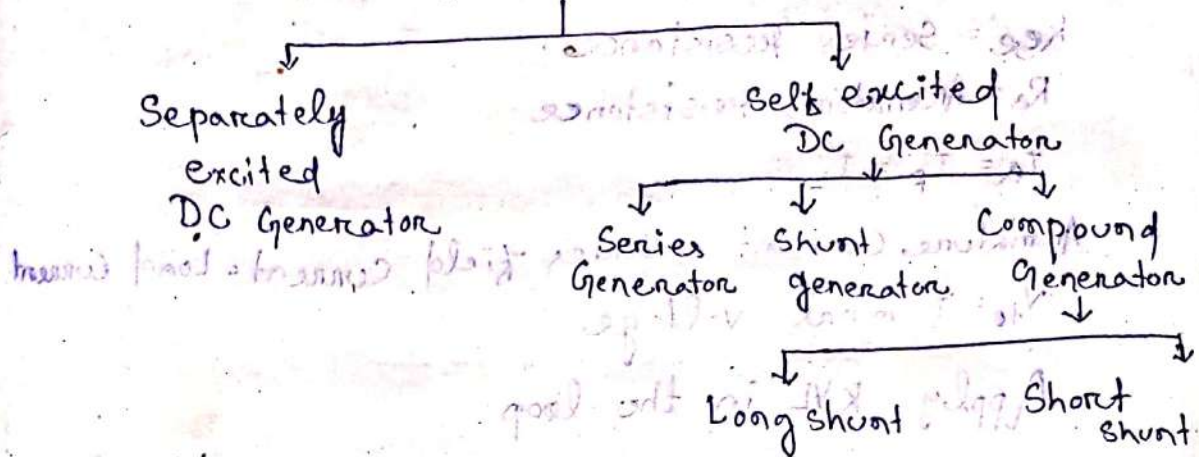 Separately
excited
D.C Generator
Self excited
DC Generator
Series
Generator
Shunt
generator
Compound
Generator
Long shunt
Short
shunt